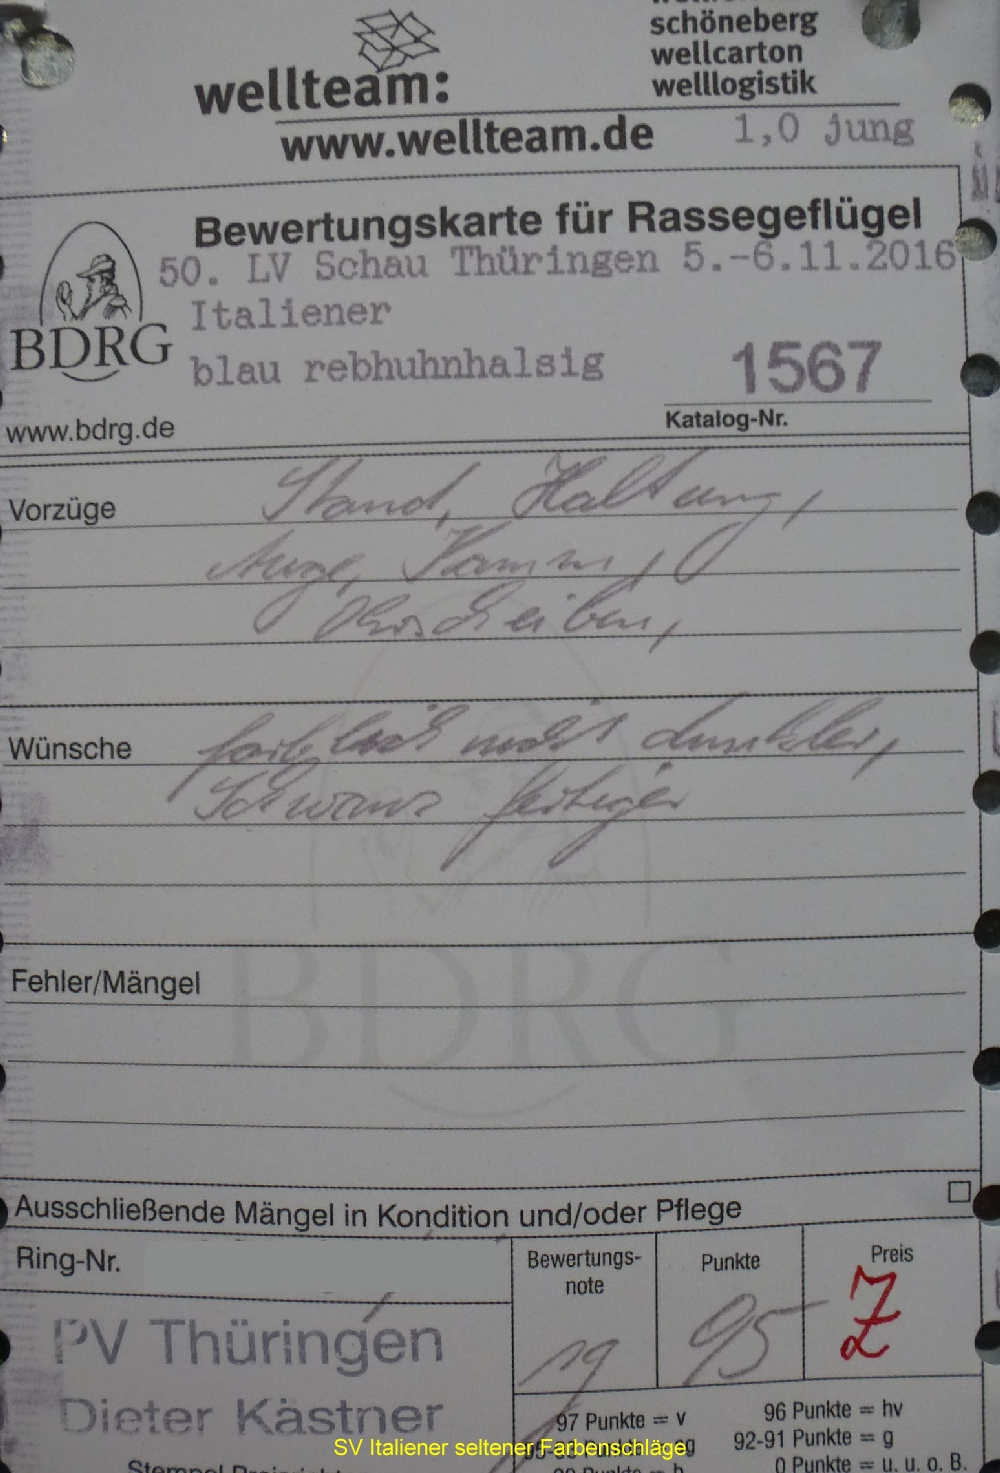 schöneberg
wellcarton
welllogistik
wellteam:
www.wellteam.de 1,0 jung
Bewertungskarte für Rassegeflügel
50. LV Schau Thüringen 5.-6.11.2016
Italiener
BDRG
blau rebhuhnhalsig 1567
Katalog-Nr.
www.bdrg.de
Vorzüge Stand, Haltung,
Auge, Kamm,
Ohrscheiben,
Wünsche farblich nicht dunkler,
Schwanz fertiger
BDRG
Fehler/Mängel
Ausschließende Mängel in Kondition und/oder Pflege
Ring-Nr. Bewertungs-
note Punkte Preis
sg 95 Z
PV Thüringen
Dieter Kästner
97 Punkte = v 96 Punkte = hv
92-91 Punkte = g
0 Punkte = u. u. o. B.
SV Italiener seltener Farbenschläge